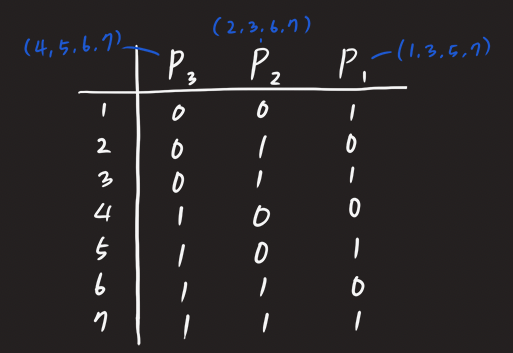 (2,3,6,7)
(4,5,6,7) (1,3,5,7)
P3 P2 P1
1 0 0 1
2 0 1 0
3 0 1 1
4 1 0 0
5 1 0 1
6 1 1 0
7 1 1 1